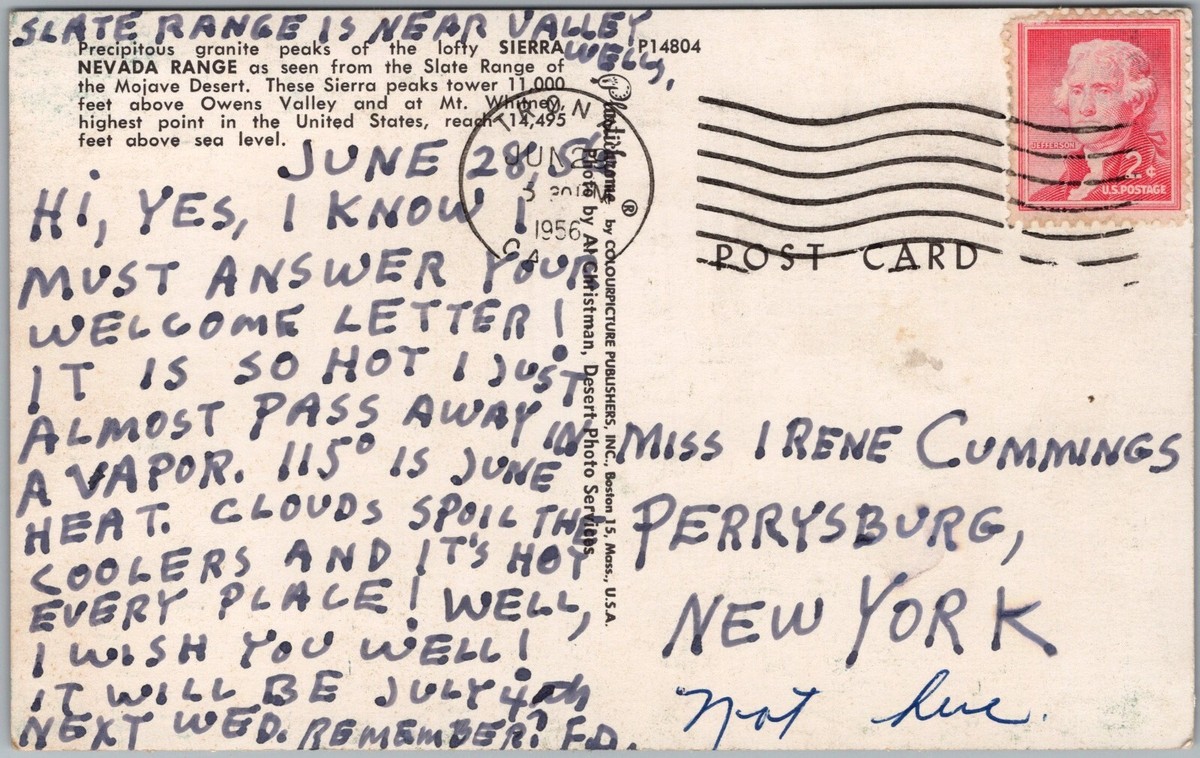 SLATE RANGE IS NEAR VALLEY
WELLS,
Precipitous granite peaks of the lofty SIERRA
NEVADA RANGE as seen from the Slate Range of
the Mojave Desert. These Sierra peaks tower 11,000
feet above Owens Valley and at Mt. Whitney,
highest point in the United States, reach 14,495
feet above sea level.
P14804
JUNE 28,
HI, YES, I KNOW I
MUST ANSWER YOUR
WELCOME LETTER!
IT IS SO HOT I JUST
ALMOST PASS AWAY IN
A VAPOR. 115° IS JUNE
HEAT. CLOUDS SPOIL THE
COOLERS AND IT'S HOT
EVERY PLACE! WELL,
I WISH YOU WELL!
IT WILL BE JULY 4th
NEXT WED. REMEMBER? F.D.
TRONA
JUN 29
1956
CA
Plastichrome ® by COLOURPICTURE PUBLISHERS, INC., Boston 15, Mass., U.S.A.
Photo by Al Christman, Desert Photo Services
JEFFERSON
2¢
U.S. POSTAGE
POST CARD
MISS IRENE CUMMINGS
PERRYSBURG,
NEW YORK
Not here.